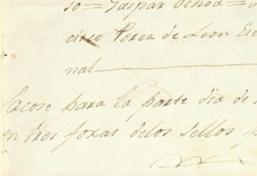 so = Gaspar Ochoa =
cisco Perez de Leon Es
nal
Sacose para la parte dia de
en tres foxas delos sellos